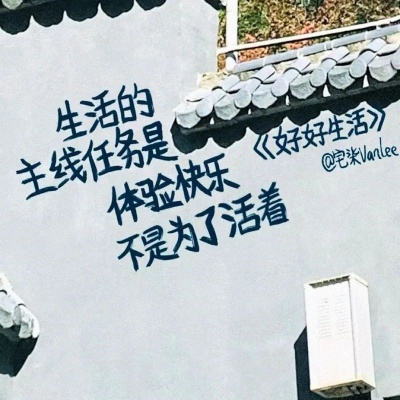 生活的
主线任务是
体验快乐
不是为了活着
《好好生活》
@宅柒Vanlee